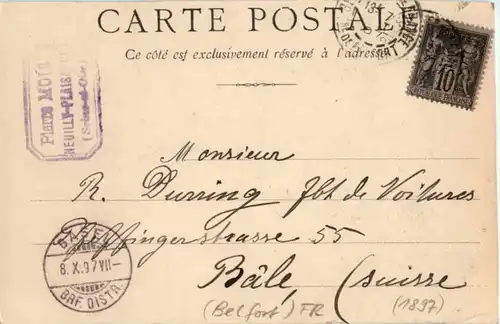 CARTE POSTALE
Ce côté est exclusivement réservé à l'adresse
10
Pierre
NEUILLY-PLAIS
(Seine-et-Oise)
Monsieur
R. Durring Fbt de Voitures
55
BASEL
8. X. 97 VII-
BRF. DISTR.
Bâle, (Suisse
(Belfort) FR (1897)